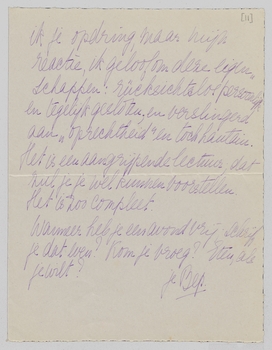 [11]
ik je opdring, maar mijn
reactie, ik geloof om deze eigen-
schappen: rücksichtslos persoonlijk
en tegelijk gesloten, en verslingerd
aan "oprechtheid" en toch hautain.
Het is een aangrijpende lectuur, dat
zul je je wel kunnen voorstellen
Het is hos compleet
Wanneer heb je een avond vrij, schrijf
je dat even? Kom je vroeg? Eten, als
je wilt?
je Bep.